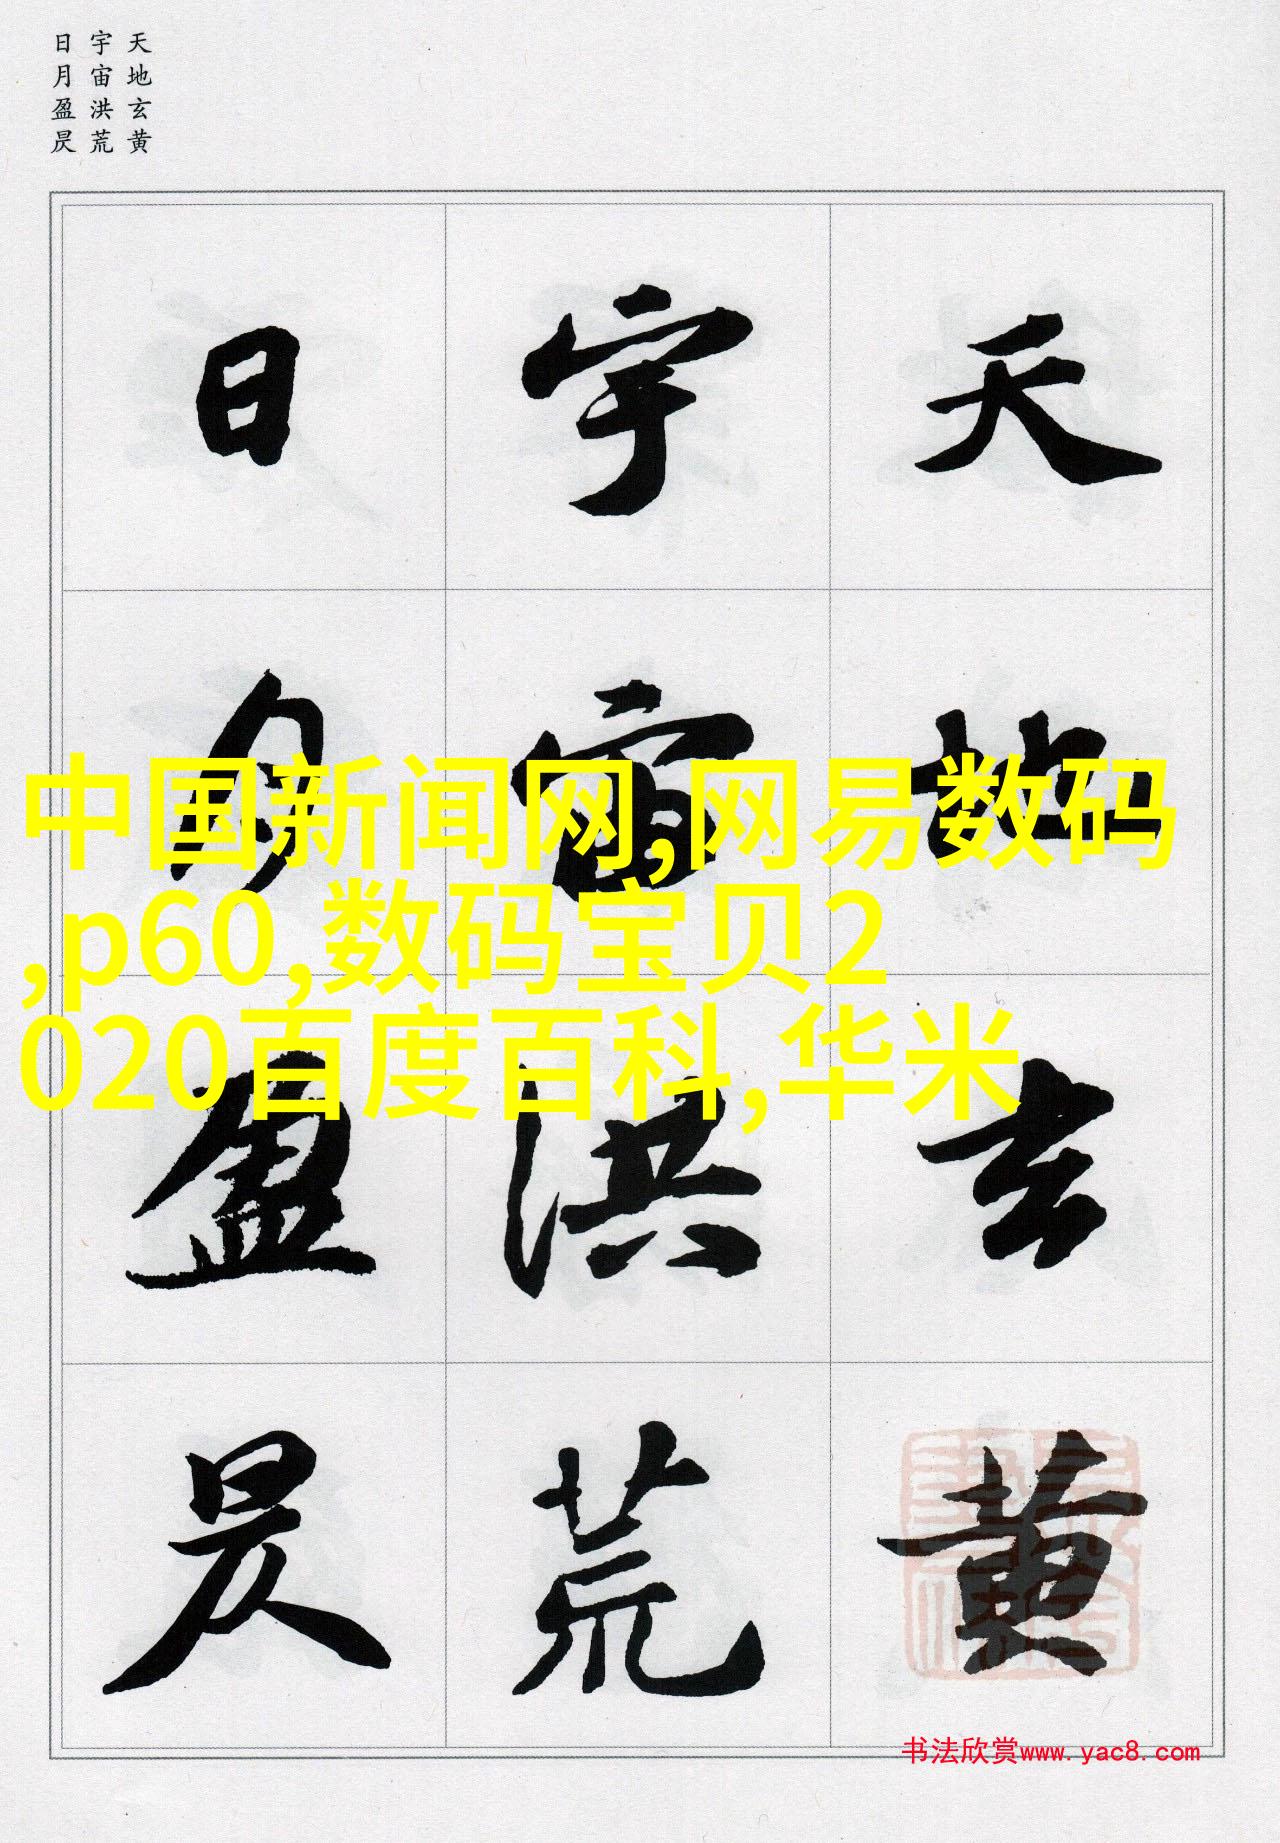 天地玄黄
宇宙洪荒
日月盈昃
天地玄黄
宇宙洪荒
日月盈昃
中国新闻网,网易数码
,p60,数码宝贝2
020百度百科,华米
书法欣赏www.yac8.com